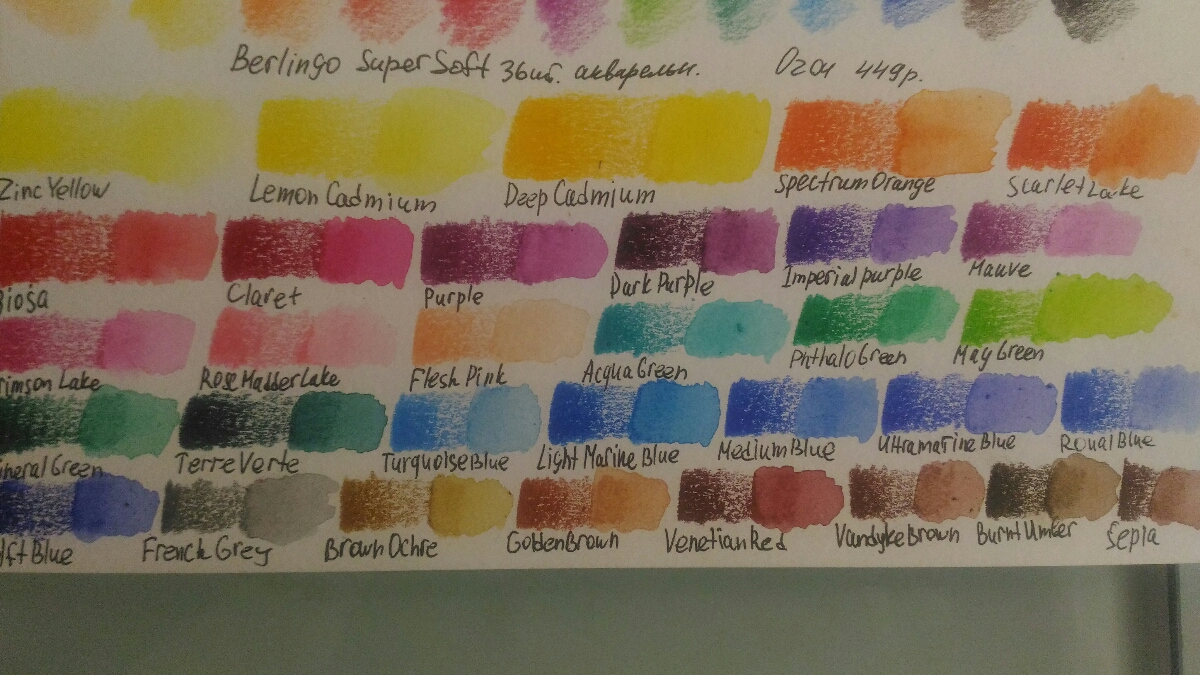 Berlingo SuperSoft 36шт. акварельн. Озон 449р.
Zinc Yellow Lemon Cadmium Deep Cadmium Spectrum Orange Scarlet Lake
Claret Purple Dark Purple Imperial purple Mauve
rimson Lake Rose Madder Lake Flesh Pink Acqua Green Phthalo Green May Green
neral Green Terre Verte Turquoise Blue Light Marine Blue Medium Blue Ultramarine Blue Royal Blue
lft Blue French Grey Brown Ochre Golden Brown Venetian Red Vandyke Brown Burnt Umber Sepia